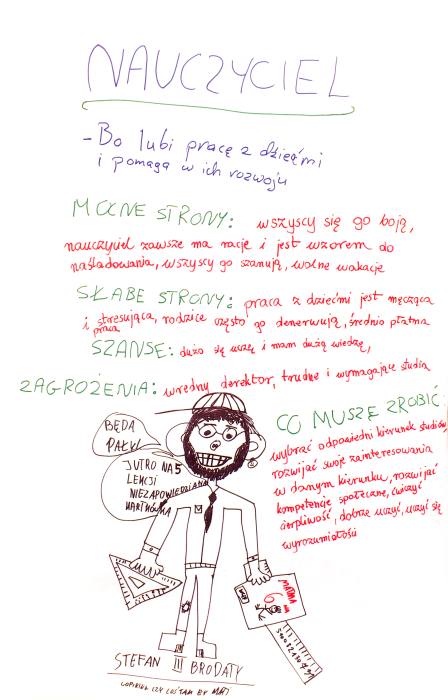 NAUCZYCIEL
- Bo lubi pracę z dziećmi
i pomaga w ich rozwoju
MOCNE STRONY: wszyscy się go boją,
nauczyciel zawsze ma rację i jest wzorem do
naśladowania, wszyscy go szanują, wolne wakacje
SŁABE STRONY: praca z dziećmi jest męcząca
i stresująca, rodzice często go denerwują, średnio płatna
praca
SZANSE: dużo się uczę i mam dużą wiedzę,
ZAGROŻENIA: wredny derektor, trudne i wymagające studia
CO MUSZĘ ZROBIĆ:
wybrać odpowiedni kierunek studiów,
rozwijać swoje zainteresowania
w danym kierunku, rozwijać
kompetencje społeczne, ćwiczyć
cierpliwość, dobrze uczyć, uczyć się
wyrozumiałości
BĘDĄ
PAŁY!
JUTRO NA 5
LEKCJI
NIEZAPOWIEDZIANA
KARTKÓWKA
MATMA
6
STEFAN III BRODATY